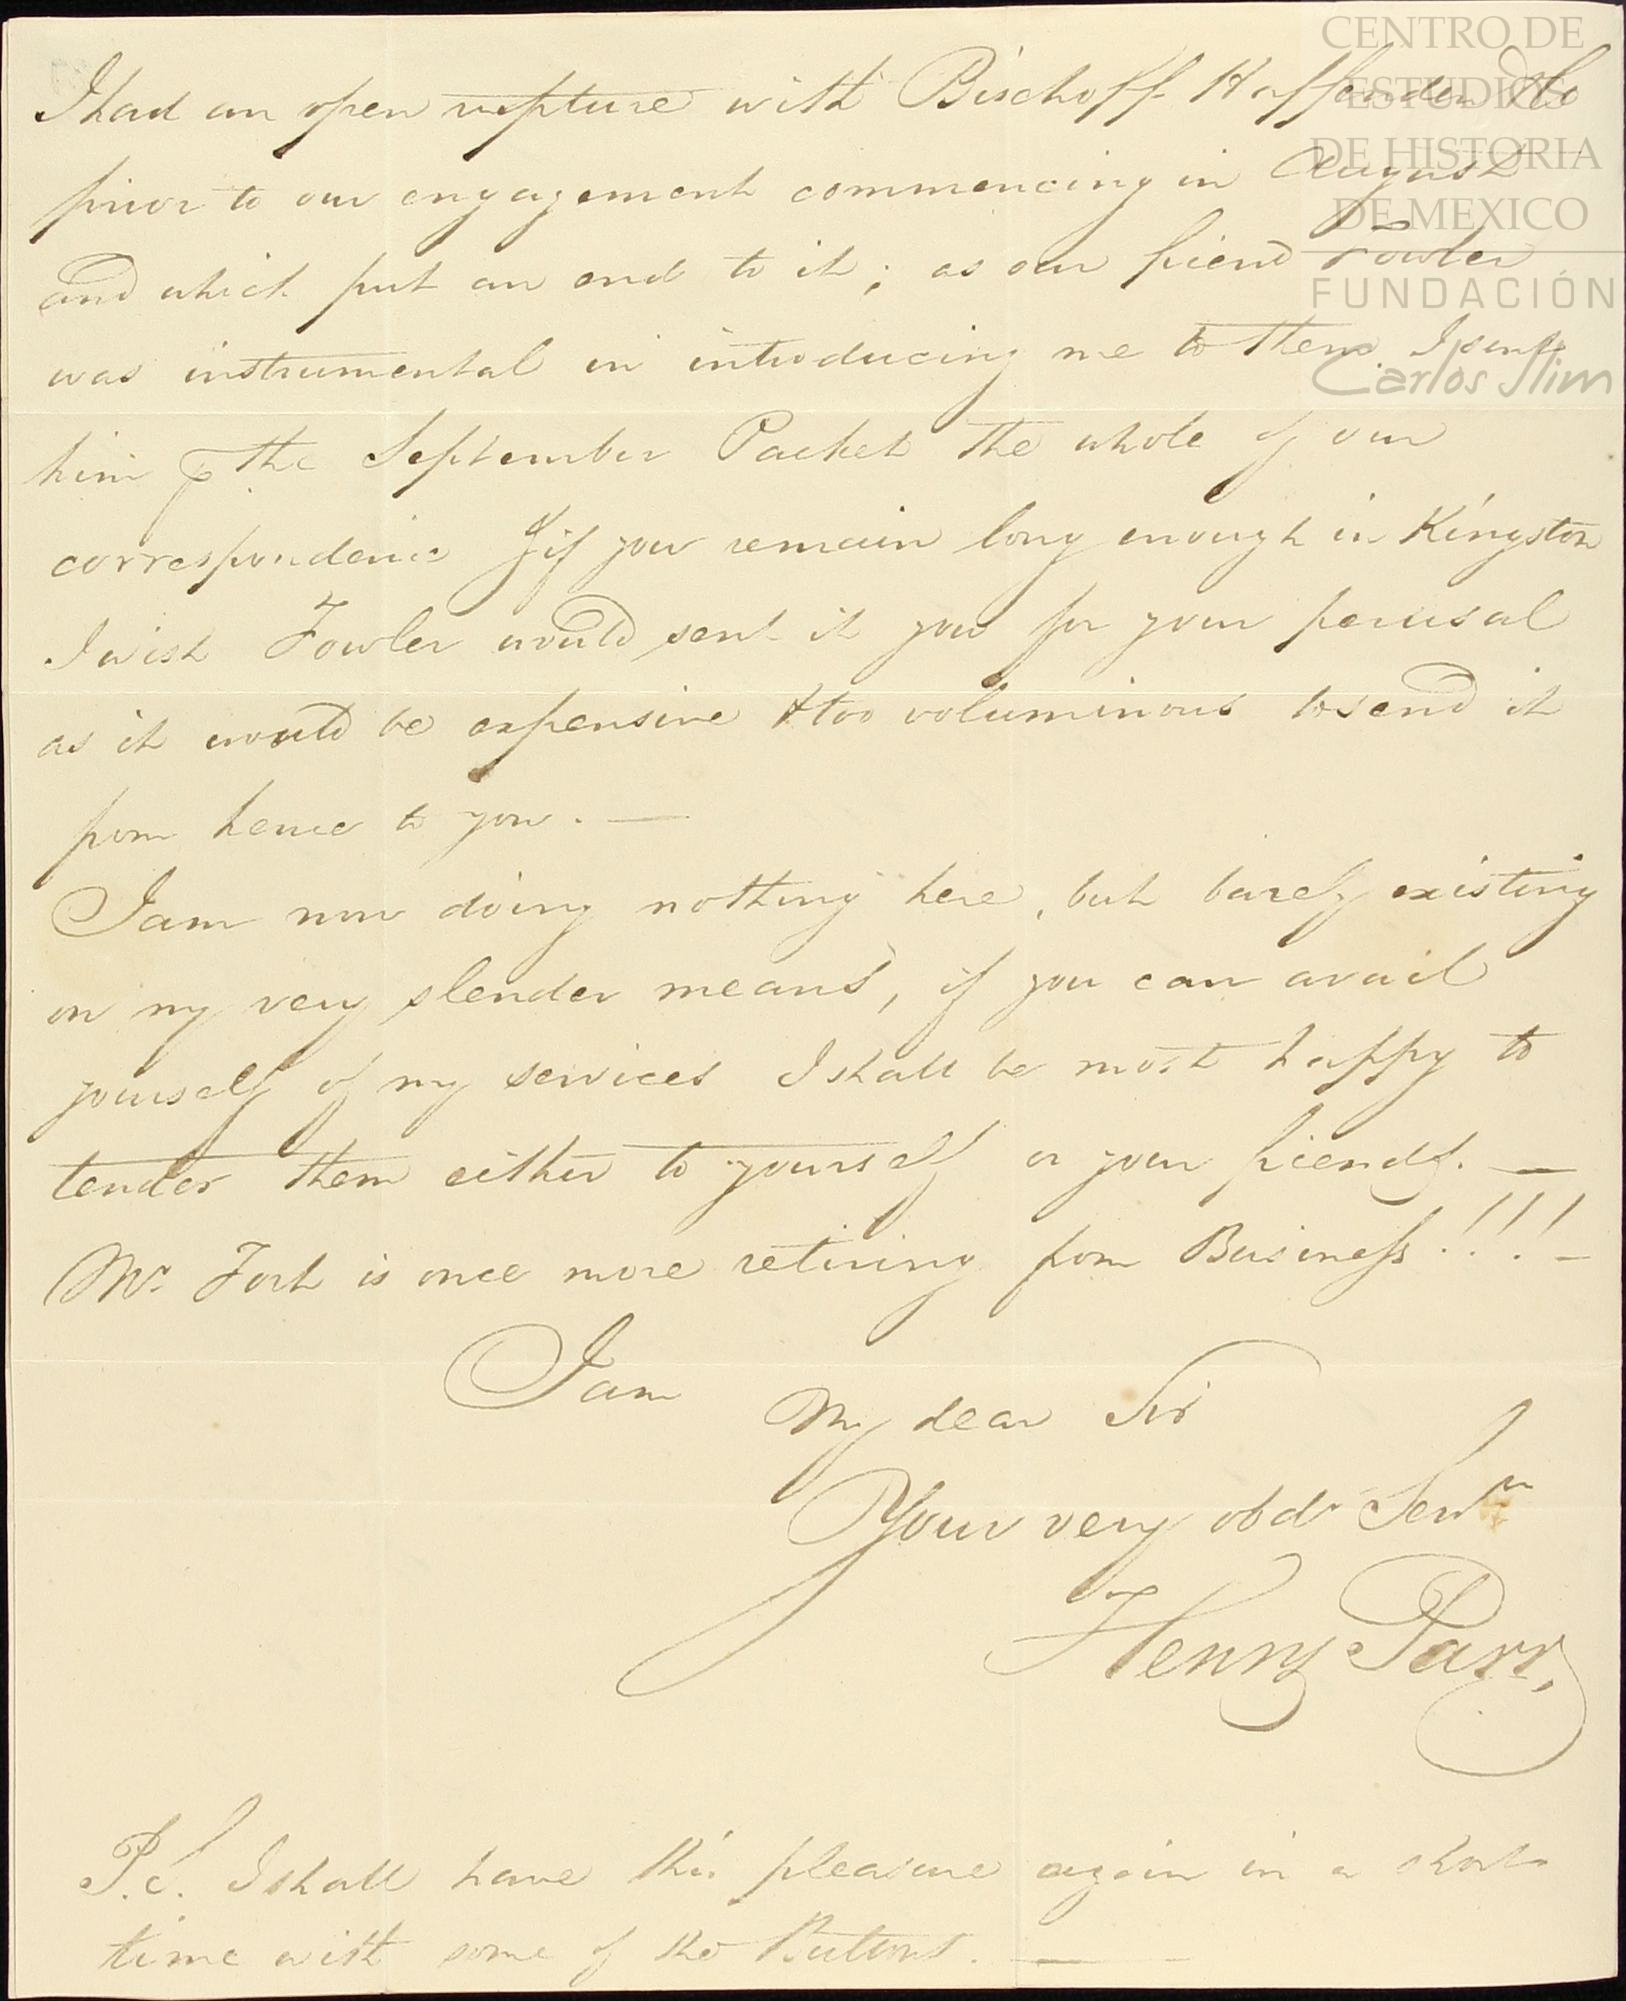 CENTRO DE
ESTUDIOS
DE HISTORIA
DE MEXICO
FUNDACIÓN
Carlos Slim
I had an open rupture with Bischoff Haffenden &Co
prior to our engagement commencing in August
and which put an end to it; as our friend Fowler
was instrumental in introducing me to them I sent
him ⅌ the September Packet the whole of our
correspondence & if you remain long enough in Kingston
I wish Fowler would sent it you for your perusal
as it would be expensive & too voluminous to send it
from hence to you. —
I am now doing nothing here, but barely existing
on my very slender means, if you can avail
yourself of my services I shall be most happy to
tender them either to yourself or your friends. —
Mr. Fort is once more retiring from Business!!!! —
I am
My dear Sir
Your very obdt Servt
Henry Parr,
P.S. I shall have this pleasure again in a short
time with some of the Buttons. —